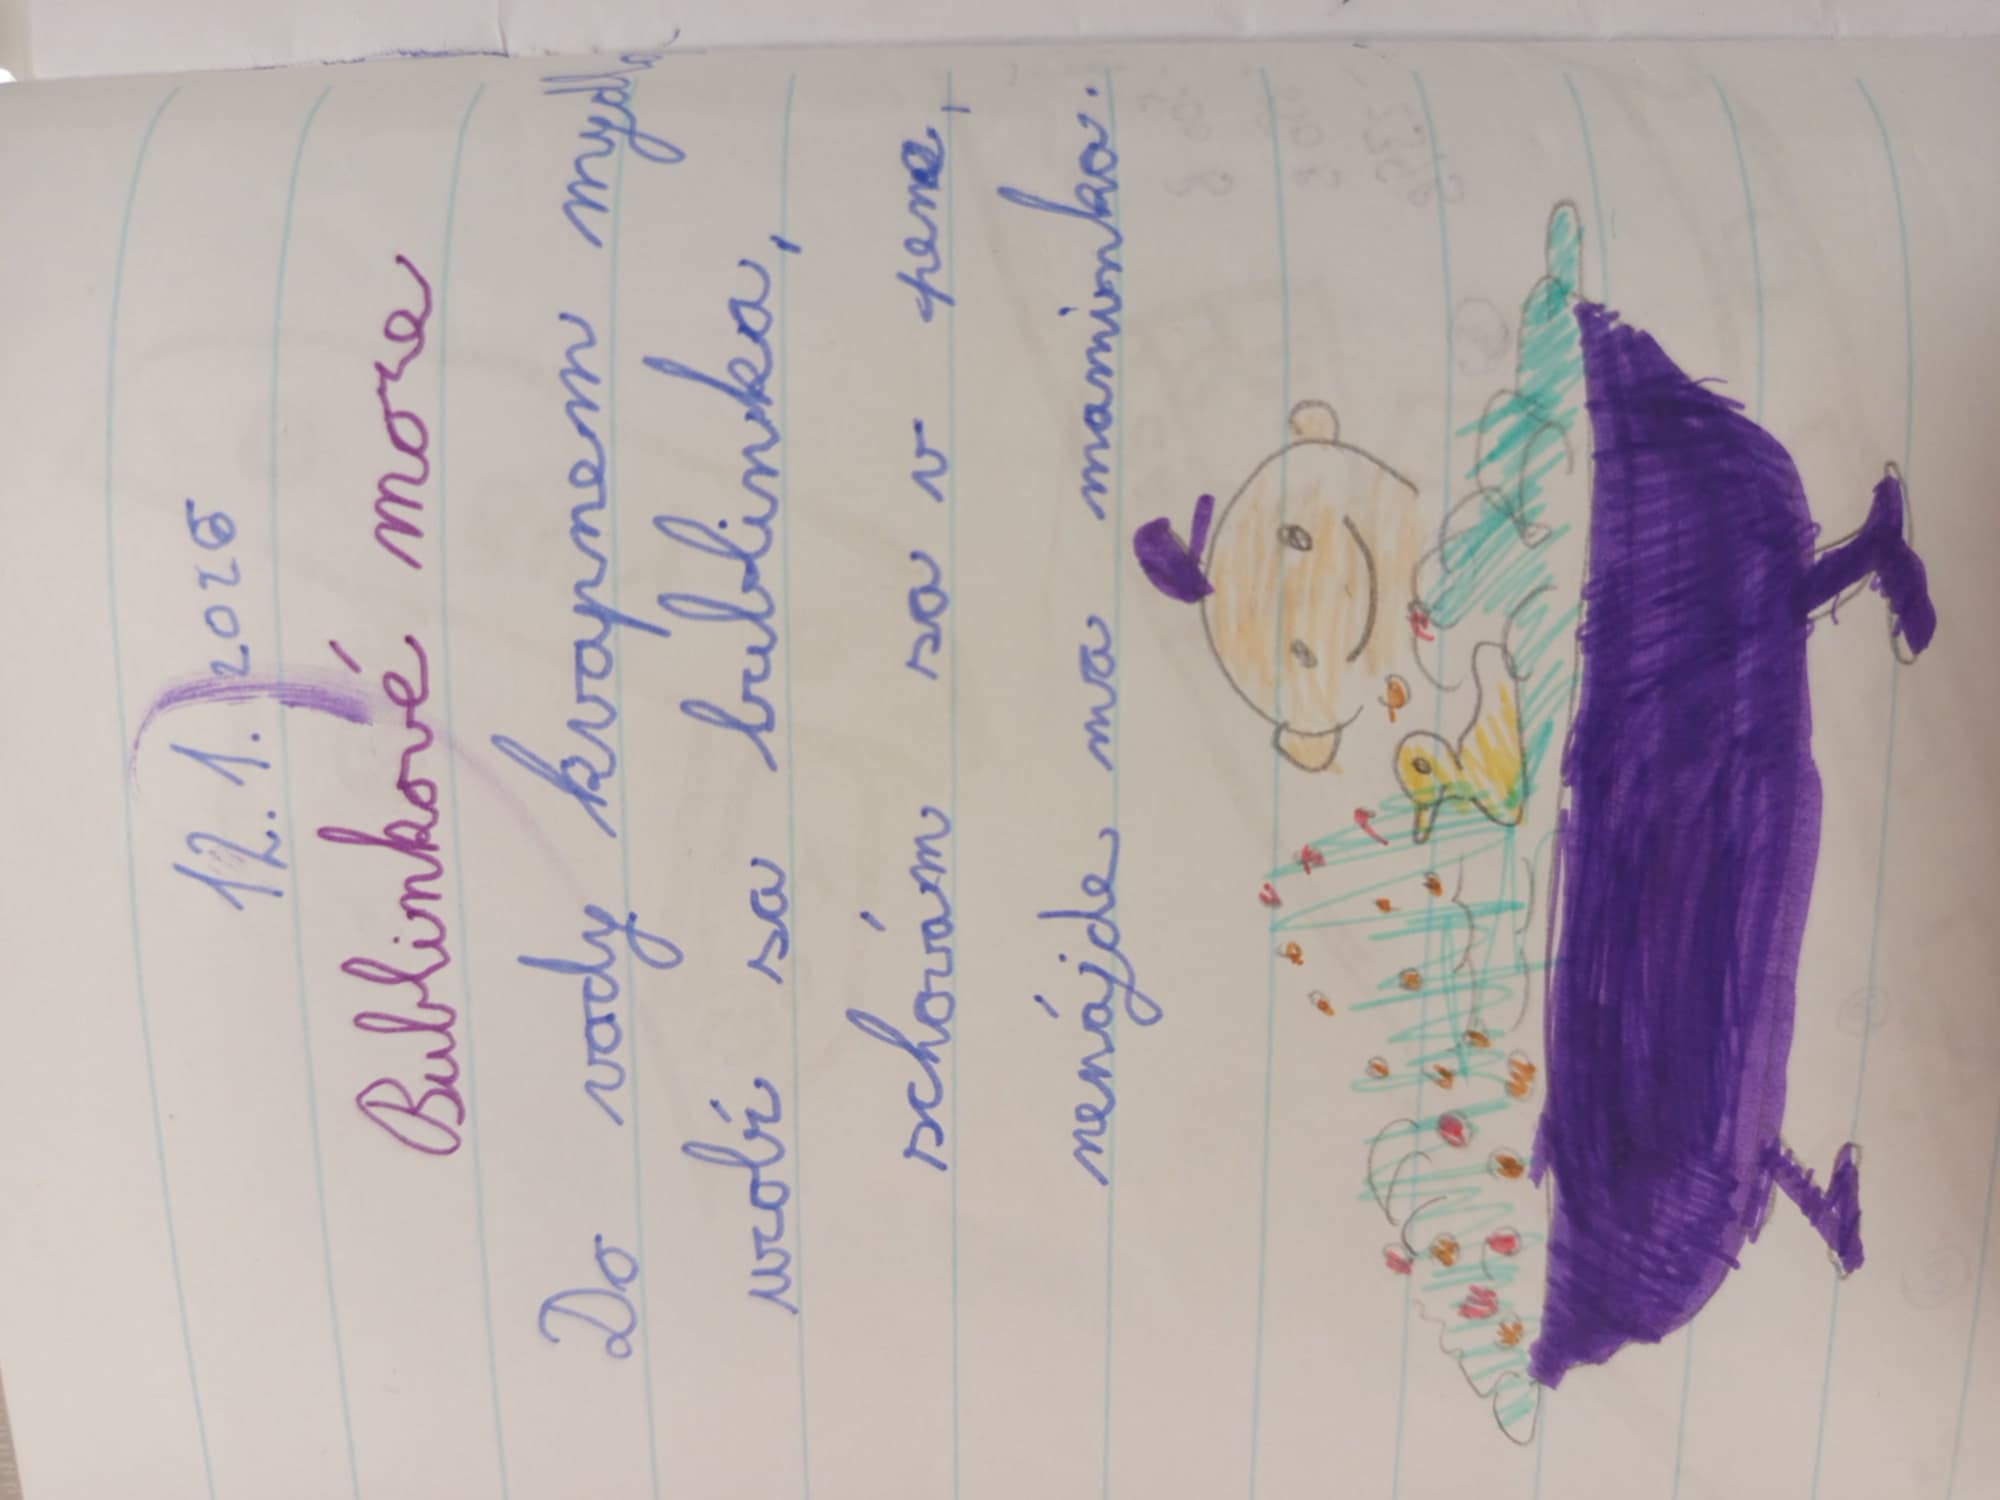 12. 1. 2026
Bublinkové more
Do vody kvapnem mydla
urobí sa bublinka,
schovám sa v pene,
nenájde ma maminka.